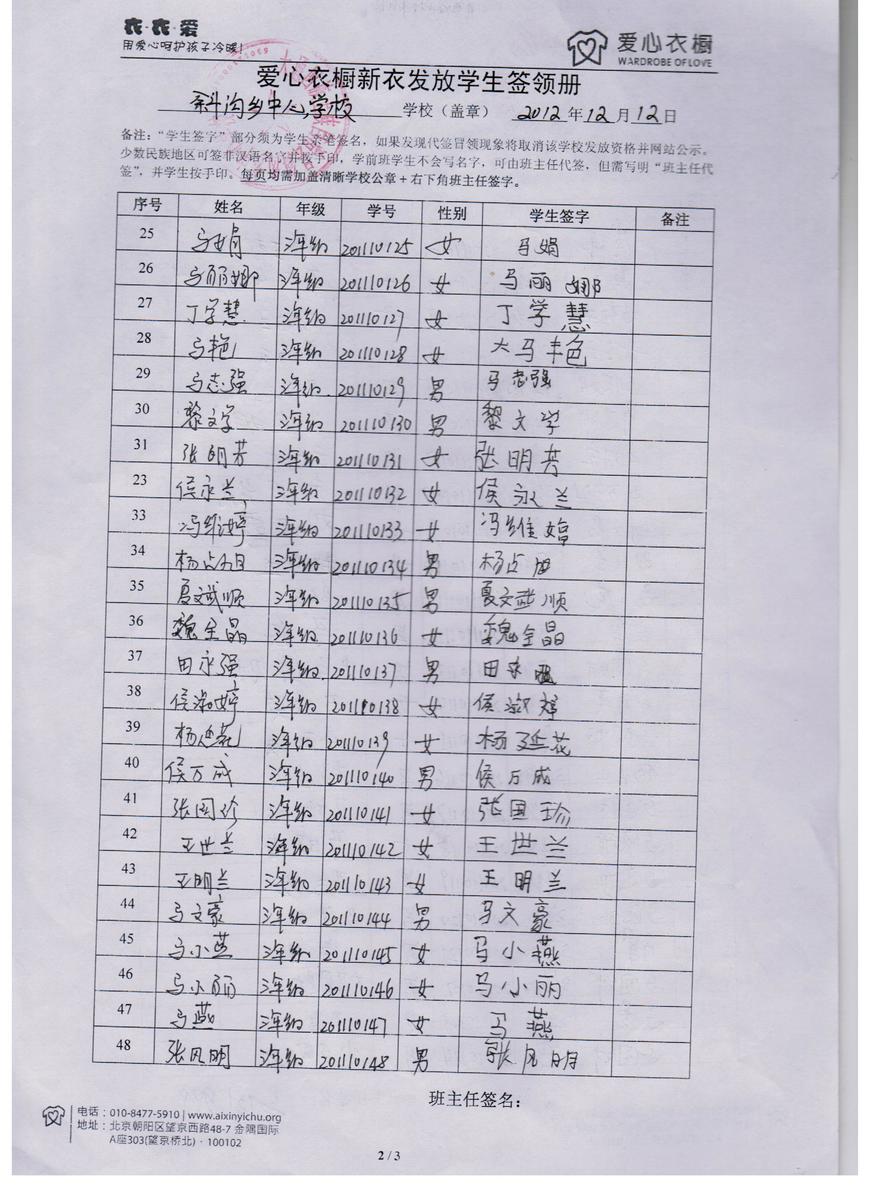 衣·衣·爱
用爱心呵护孩子冷暖!
爱心衣橱
WARDROBE OF LOVE
爱心衣橱新衣发放学生签领册
斜沟乡中心学校 学校(盖章) 2012年12月12日
备注:“学生签字”部分须为学生亲笔签名,如果发现代签冒领现象将取消该学校发放资格并网站公示。
少数民族地区可签非汉语名字并按手印,学前班学生不会写名字,可由班主任代签,但需写明“班主任代
签”,并学生按手印。每页均需加盖清晰学校公章+右下角班主任签字。
序号 姓名 年级 学号 性别 学生签字 备注
25 马娟 二年级 201110125 女 马娟
26 马丽娜 二年级 201110126 女 马丽娜
27 丁学慧 二年级 201110127 女 丁学慧
28 马艳 二年级 201110128 女 大马艳
29 马志强 二年级 201110129 男 马志强
30 黎文学 二年级 201110130 男 黎文学
31 张明芳 二年级 201110131 女 张明芳
23 侯永兰 二年级 201110132 女 侯永兰
33 冯维婷 二年级 201110133 女 冯维婷
34 杨占旭 二年级 201110134 男 杨占旭
35 夏文斌顺 二年级 201110135 男 夏文斌顺
36 魏全晶 二年级 201110136 女 魏全晶
37 田永强 二年级 201110137 男 田永强
38 侯淑婷 二年级 201110138 女 侯淑婷
39 杨延花 二年级 201110139 女 杨延花
40 侯万成 二年级 201110140 男 侯万成
41 张国珍 二年级 201110141 女 张国珍
42 王世兰 二年级 201110142 女 王世兰
43 王明兰 二年级 201110143 女 王明兰
44 马文豪 二年级 201110144 男 马文豪
45 马小燕 二年级 201110145 女 马小燕
46 马小丽 二年级 201110146 女 马小丽
47 马燕 二年级 201110147 女 马燕
48 张凡明 二年级 201110148 男 张凡明
班主任签名:
电话:010-8477-5910 | www.aixinyichu.org
地址:北京朝阳区望京西路48-7 金隅国际
A座303(望京桥北)·100102
2 / 3